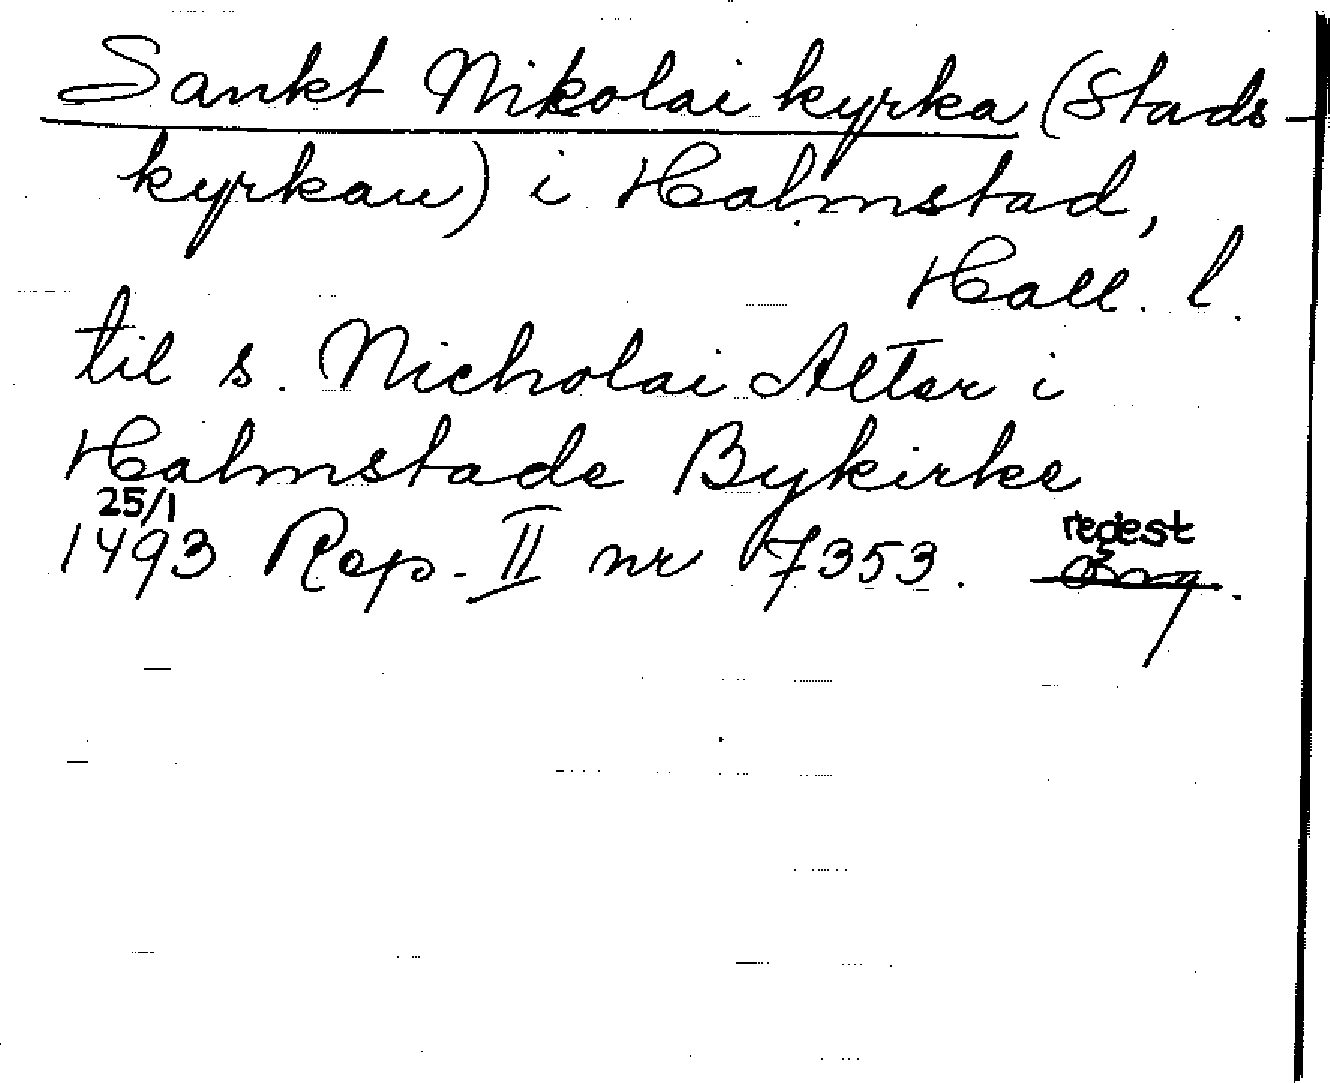 Sankt Nikolai kyrka (Stads-
kyrkan) i Halmstad,
Hall. l.
til s. Nicholai Alter i
Halmstade Bykirke
25/1
1493 Rep. II nr 7353. regest